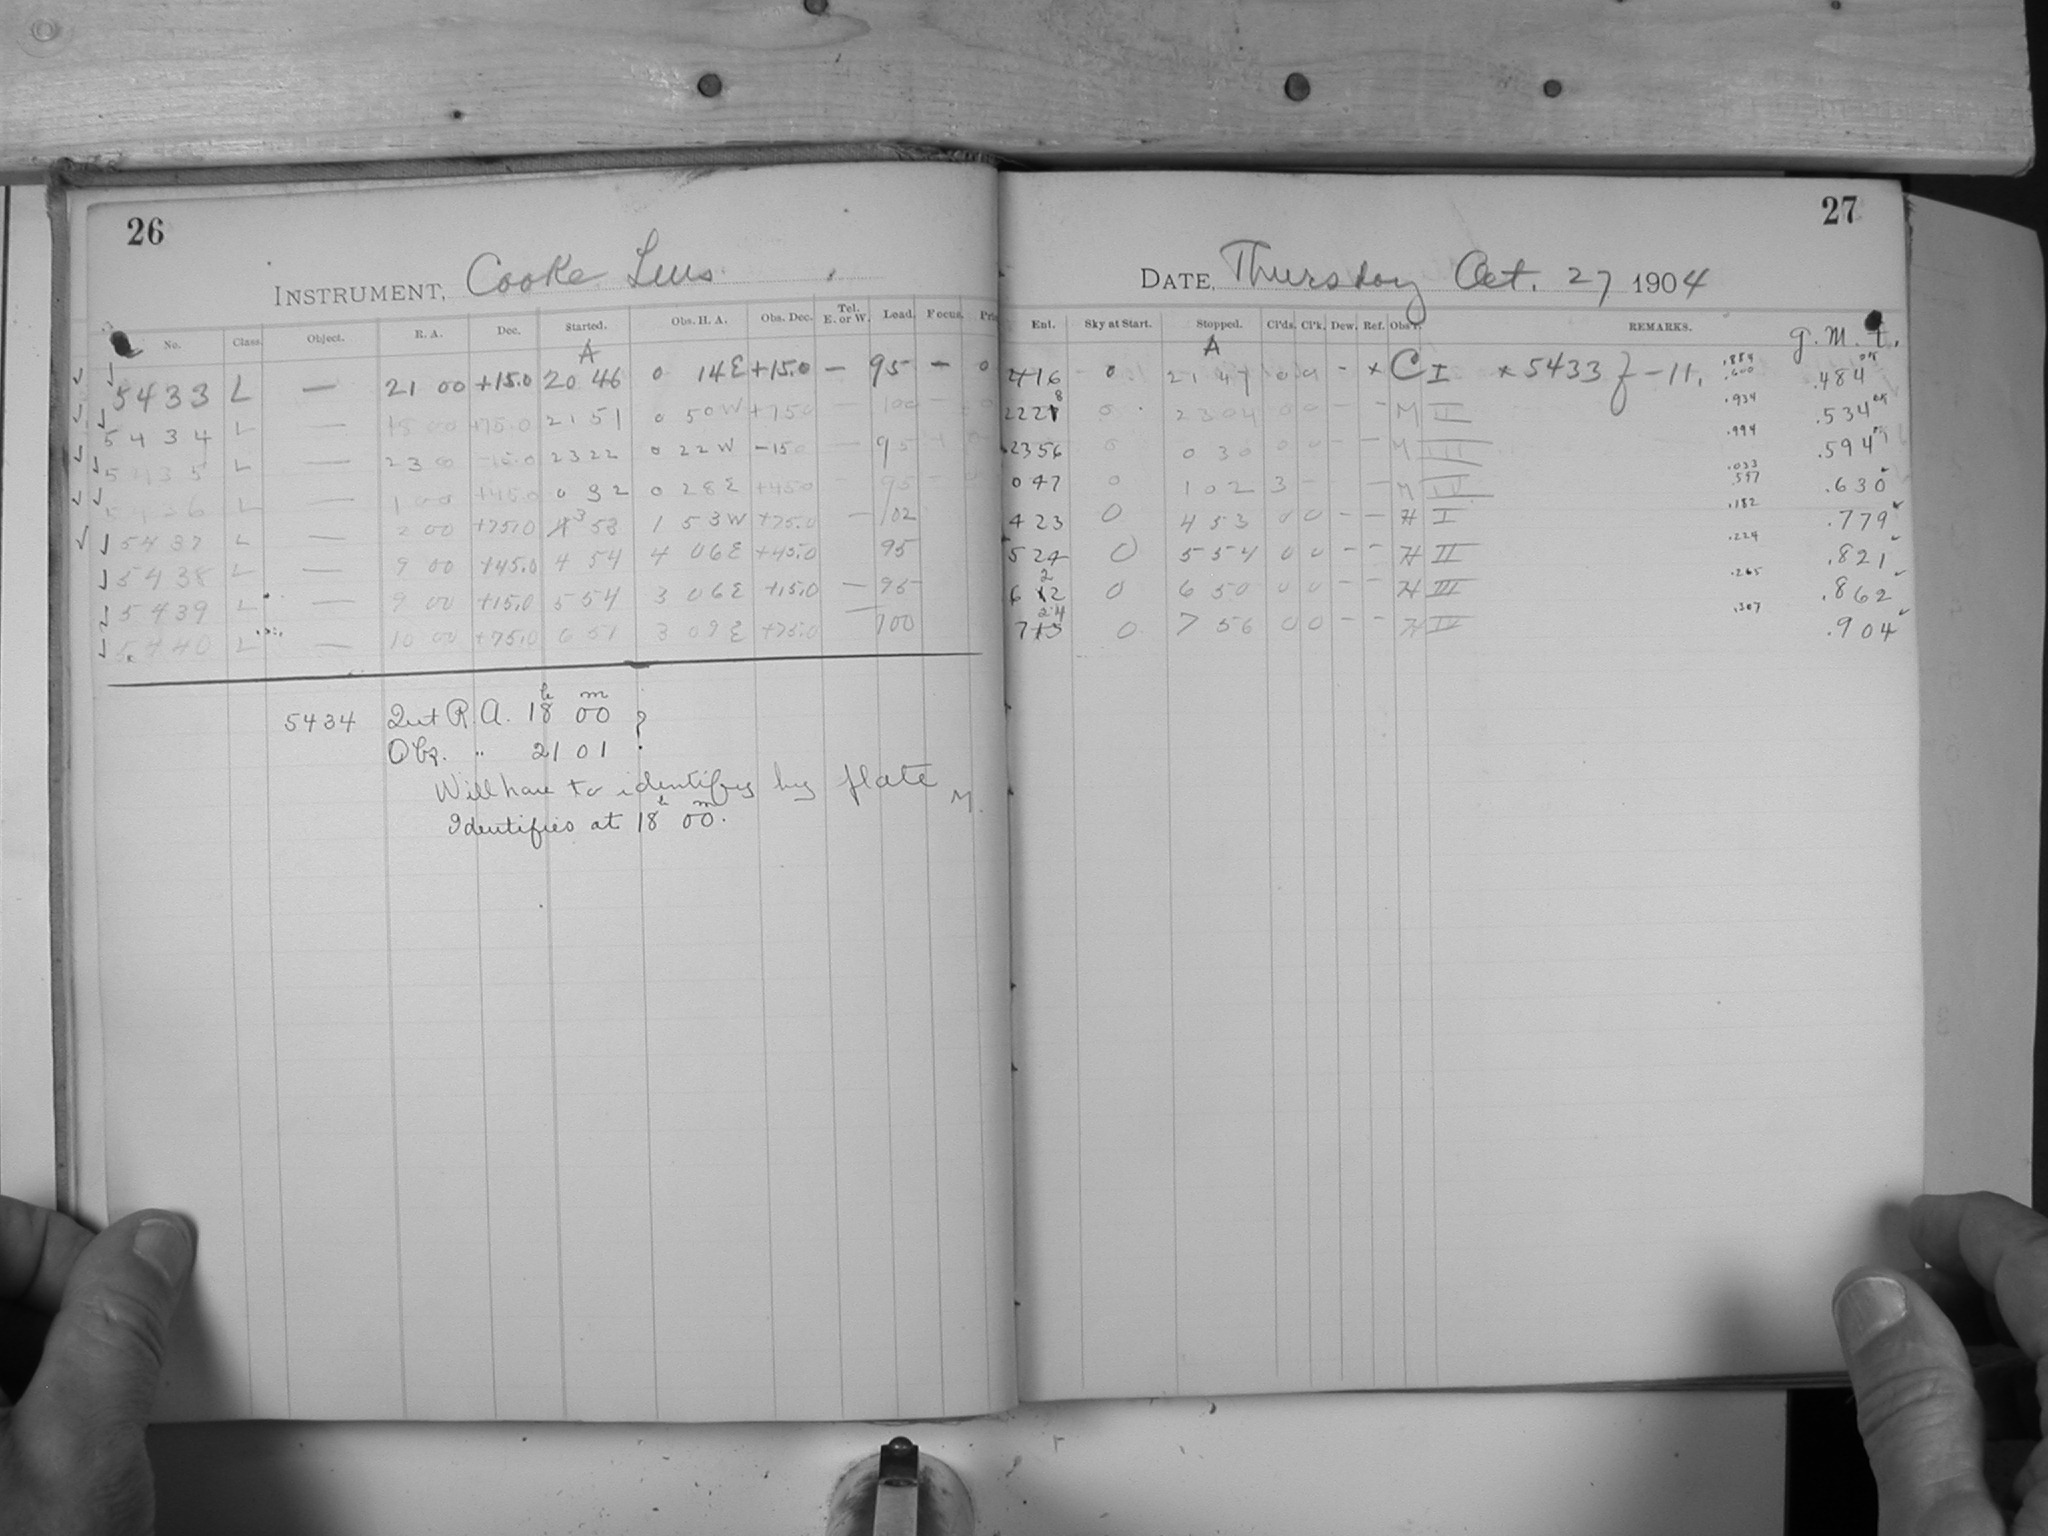 26
INSTRUMENT, Cooke Lens
No. Class Object. R. A. Dec. Started. Obs. H. A. Obs. Dec. Tel. E. or W. Load. Focus.
A
5433 L — 21 00 +15.0 20 46 0 14 E +15.0 — 95 — 0
5434 L — 18 00 +75.0 21 51 0 50 W +75.0 — 100 —
5435 L — 23 0 -15.0 23 22 0 22 W -15.0 — 95
5436 L — 1 00 +45.0 0 32 0 28 E +45.0 — 95
5437 L — 2 00 +75.0 3 53 1 53 W +75.0 — 102
5438 L — 9 00 +45.0 4 54 4 06 E +45.0 95
5439 L — 9 00 +15.0 5 54 3 06 E +15.0 — 95
5440 L — 10 00 +75.0 6 51 3 09 E +75.0 — 100
5434 Int R.A. 18h 00m ?
Obs. " 21 01
Will have to identify by plate M.
Identifies at 18h 00m.
27
DATE, Thursday Oct. 27 1904
Ent. Sky at Start. Stopped. Cl'ds. Cl'k. Dew. Ref. Obs'r. REMARKS. G. M. T.
A
2116 0 21 47 0 0 - x C I x 5433 f - 11. .484
2228 0 23 04 0 0 - - M II .934 .534
2356 0 0 30 0 0 - - M III .994 .594
0 47 0 1 02 3 - - M IV .033 .597 .630
4 23 0 4 53 0 0 - - H I .182 .779
5 24 0 5 54 0 0 - - H II .224 .821
6 22 0 6 50 0 0 - - H III .265 .862
7 24 0 7 56 0 0 - - H IV .307 .904